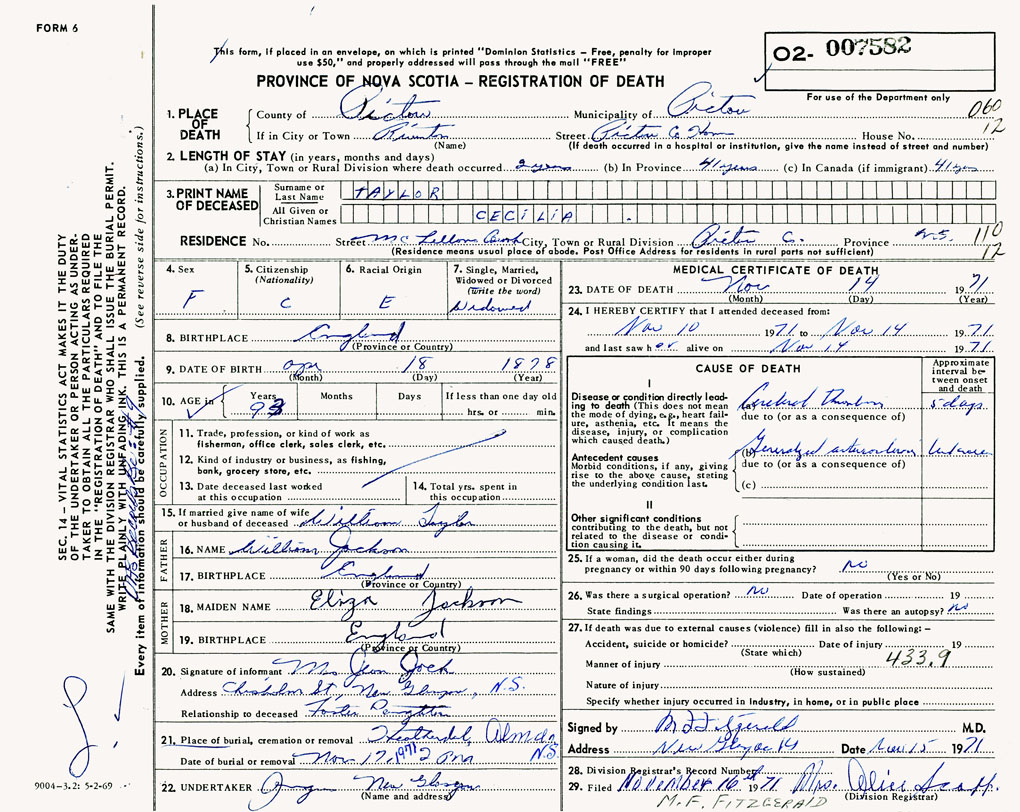 FORM 6
This form, if placed in an envelope, on which is printed "Dominion Statistics – Free, penalty for improper
use $50," and properly addressed will pass through the mail "FREE"
02- 007582
PROVINCE OF NOVA SCOTIA – REGISTRATION OF DEATH
For use of the Department only
060
12
1. PLACE OF DEATH
County of Pictou Municipality of Pictou
If in City or Town Riverton Street Pictou Co Home House No.
(Name) (If death occurred in a hospital or institution, give the name instead of street and number)
2. LENGTH OF STAY (in years, months and days)
(a) In City, Town or Rural Division where death occurred 2 years (b) In Province 41 years (c) In Canada (if immigrant) 41 yrs
3. PRINT NAME OF DECEASED
Surname or Last Name TAYLOR
All Given or Christian Names CECILIA
RESIDENCE No. Street McLellans Brook City, Town or Rural Division Pictou C. Province N.S.
110
12
(Residence means usual place of abode. Post Office Address for residents in rural parts not sufficient)
4. Sex
F
5. Citizenship
(Nationality)
C
6. Racial Origin
E
7. Single, Married,
Widowed or Divorced
(Write the word)
Widowed
8. BIRTHPLACE England
(Province or Country)
9. DATE OF BIRTH Apr 18 1878
(Month) (Day) (Year)
10. AGE in Years 93 Months Days If less than one day old
hrs. or min.
OCCUPATION
11. Trade, profession, or kind of work as
fisherman, office clerk, sales clerk, etc.
12. Kind of industry or business, as fishing,
bank, grocery store, etc.
13. Date deceased last worked
at this occupation
14. Total yrs. spent in
this occupation
15. If married give name of wife
or husband of deceased William Taylor
FATHER
16. NAME William Jackson
17. BIRTHPLACE England
(Province or Country)
MOTHER
18. MAIDEN NAME Eliza Jackson
19. BIRTHPLACE England
(Province or Country)
20. Signature of informant Mrs Jean Jack
Address Chisholm St, New Glasgow, N.S.
Relationship to deceased Foster Daughter
21. Place of burial, cremation or removal Heatherdel, Alma N.S.
Date of burial or removal Nov 17, 1971 2 PM
22. UNDERTAKER New Glasgow
(Name and address)
MEDICAL CERTIFICATE OF DEATH
23. DATE OF DEATH Nov 14 1971
(Month) (Day) (Year)
24. I HEREBY CERTIFY that I attended deceased from:
Nov 10 1971 to Nov 14 1971
and last saw her alive on Nov 14 1971
CAUSE OF DEATH
Approximate interval between onset and death
I
Disease or condition directly leading
to death (This does not mean
the mode of dying, e.g., heart failure,
asthenia, etc. It means the
disease, injury, or complication
which caused death.)
(a) Cerebral thrombosis 5 days
due to (or as a consequence of)
Antecedent causes
Morbid conditions, if any, giving
rise to the above cause, stating
the underlying condition last.
(b) Generalized arteriosclerosis
due to (or as a consequence of)
(c)
II
Other significant conditions
contributing to the death, but not
related to the disease or condition
causing it.
25. If a woman, did the death occur either during
pregnancy or within 90 days following pregnancy? no
(Yes or No)
26. Was there a surgical operation? no Date of operation 19
State findings Was there an autopsy? no
27. If death was due to external causes (violence) fill in also the following: –
Accident, suicide or homicide? Date of injury 19
(State which) 433.9
Manner of injury
(How sustained)
Nature of injury
Specify whether injury occurred in Industry, in home, or in public place
Signed by M F Fitzgerald M.D.
Address New Glasgow Date Nov 15 1971
28. Division Registrar's Record Number
29. Filed November 16th 1971 Mrs. Alice Scott
(Division Registrar)
M.F. FITZGERALD
SEC. 14 – VITAL STATISTICS ACT MAKES IT THE DUTY
OF THE UNDERTAKER OR PERSON ACTING AS UNDERTAKER
TO OBTAIN ALL THE PARTICULARS REQUIRED
IN THE "REGISTRATION OF DEATH" AND TO FILE THE
SAME WITH THE DIVISION REGISTRAR WHO SHALL ISSUE THE BURIAL PERMIT.
WRITE PLAINLY WITH UNFADING INK. THIS IS A PERMANENT RECORD.
Every item of information should be carefully supplied. (See reverse side for instructions.)
9004-3.2: 5-2-69